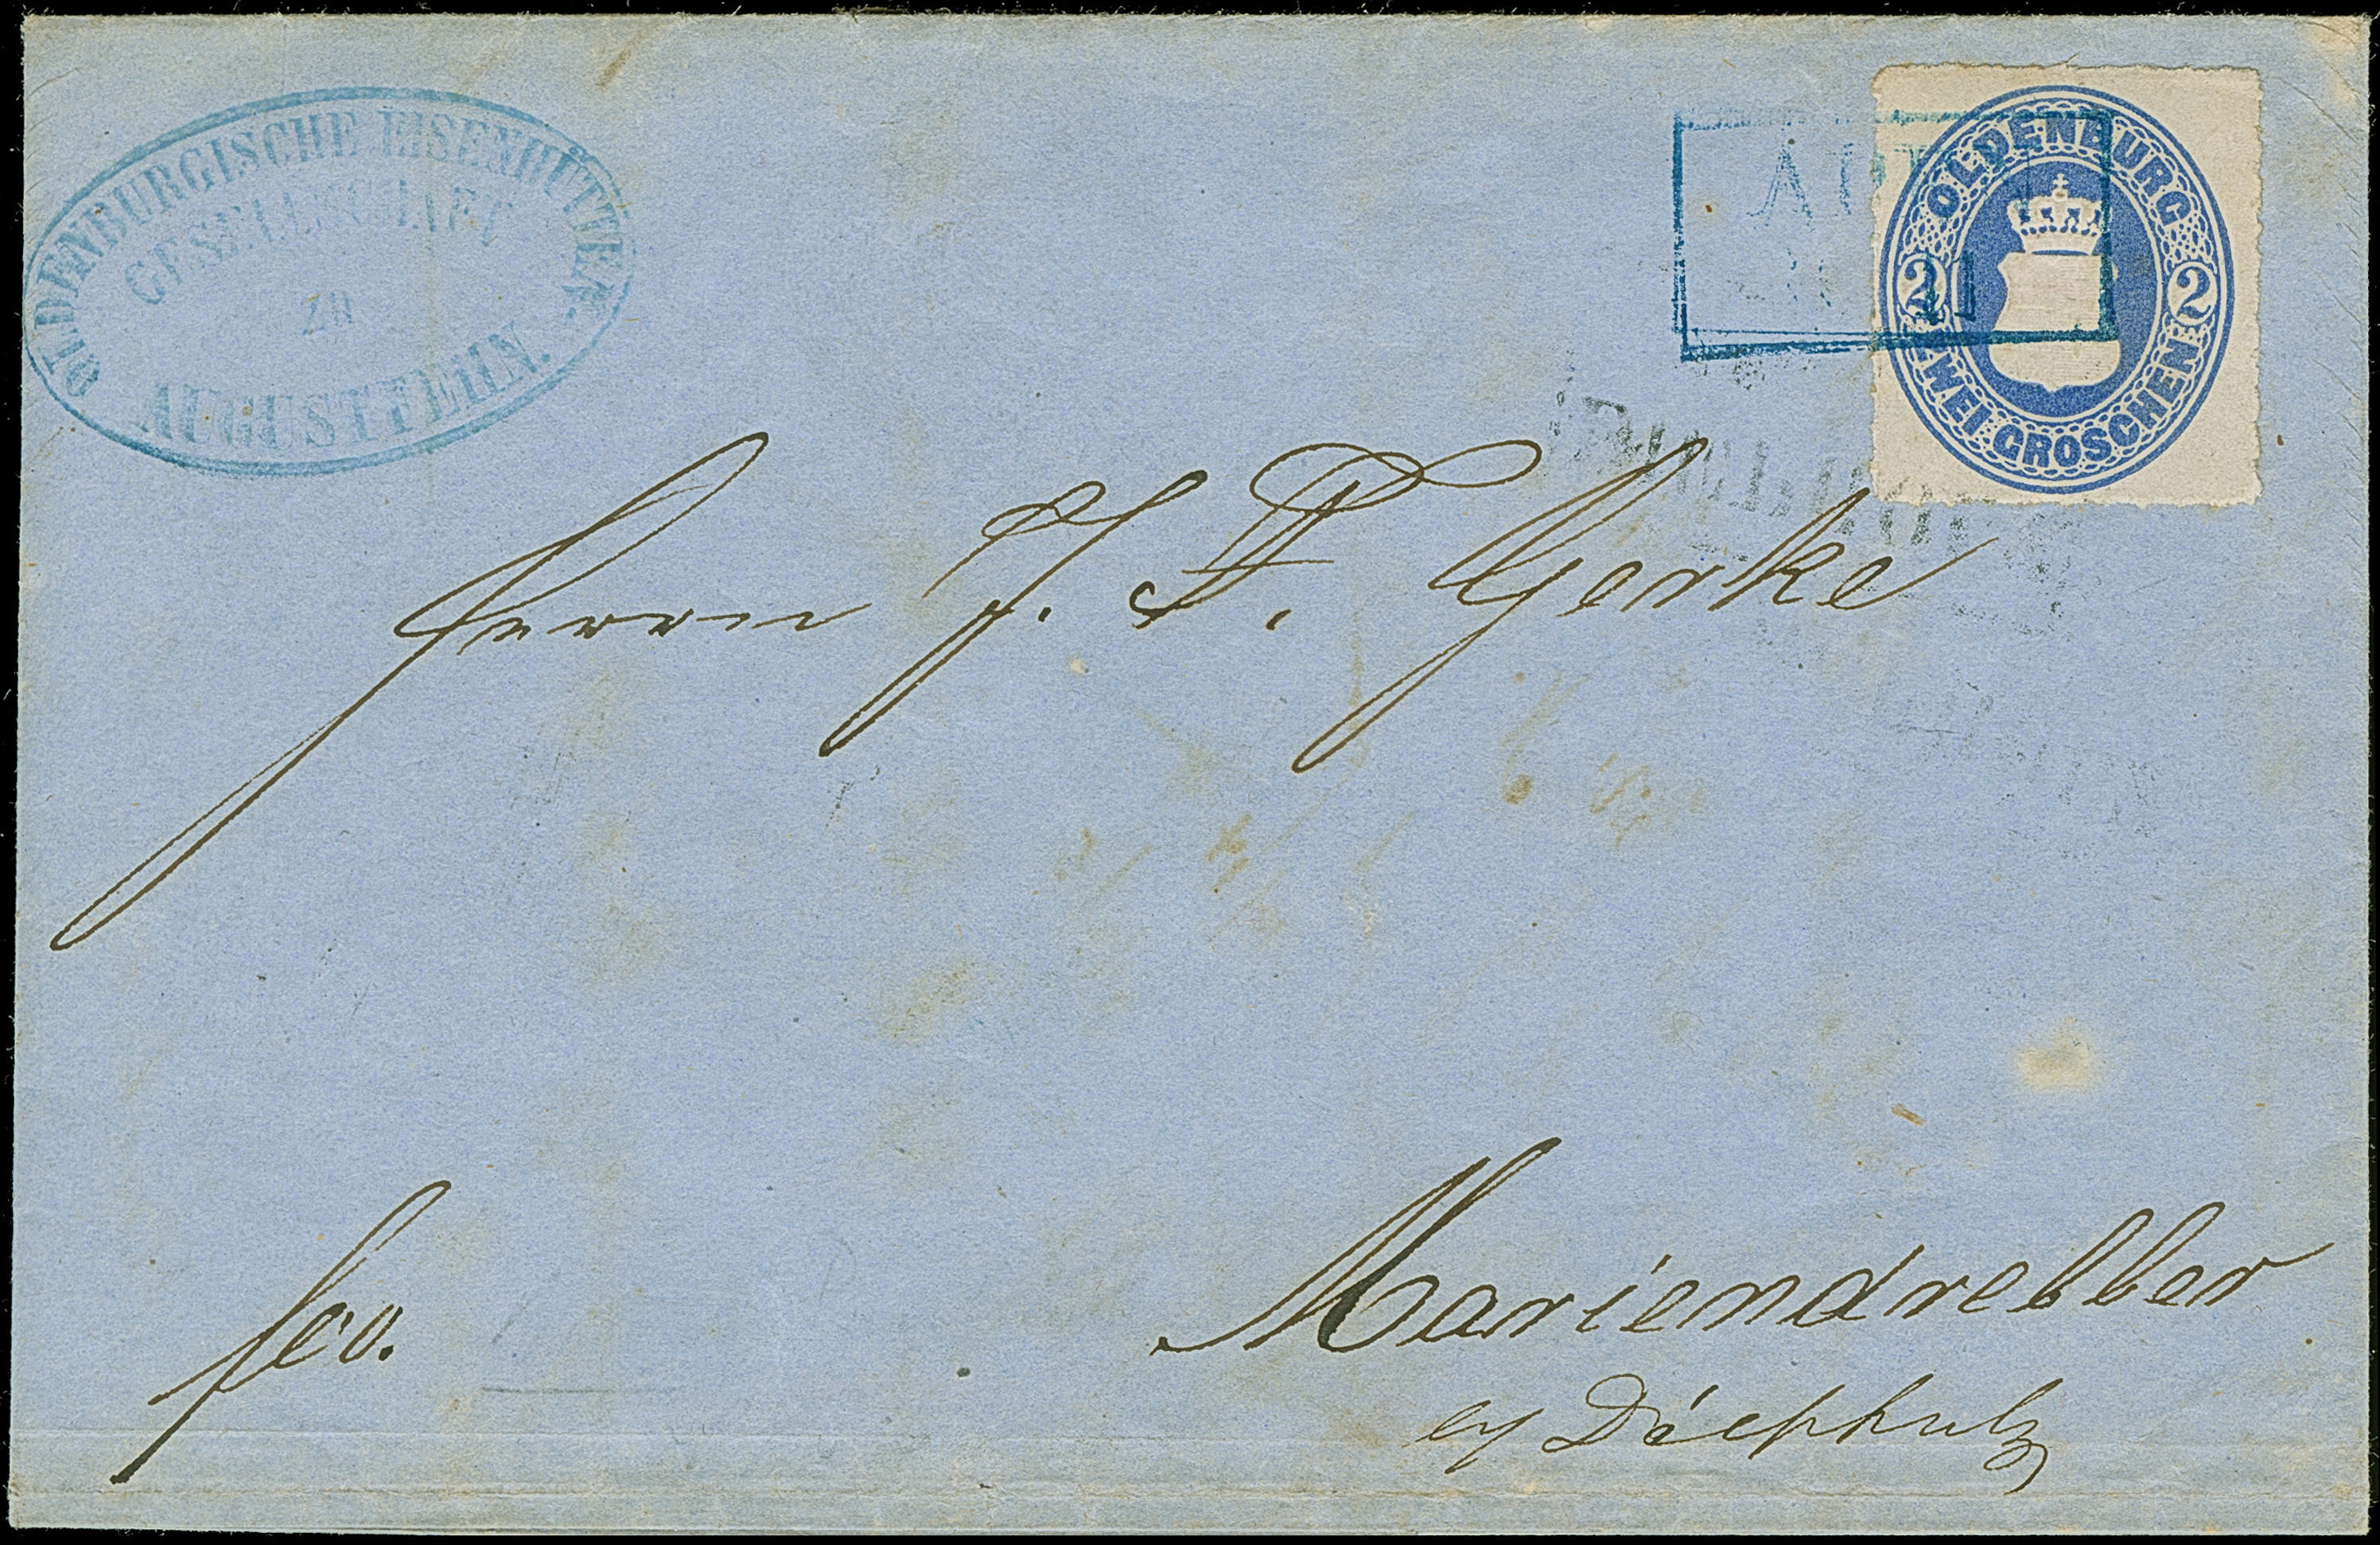 OLDENBURGISCHE EISENHÜTTEN-
GESELLSCHAFT
ZU
AUGUSTFEHN.
OLDENBURG
2 2
ZWEI GROSCHEN
Herrn J. F. Gerke
fco.
Mariendrebber
by Diepholz